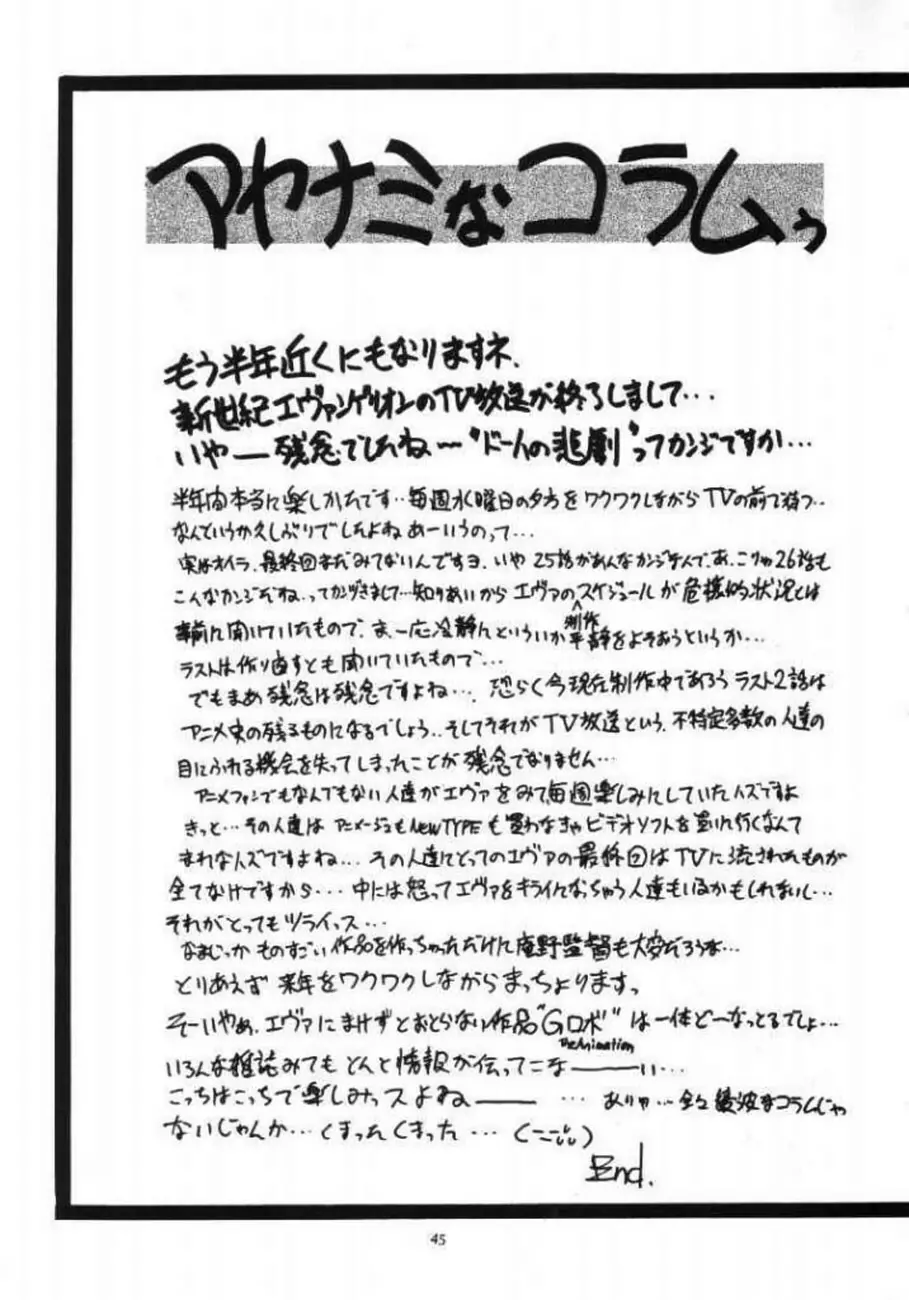 アヤナミなコラムぅ
もう半年近くにもなりますネ.
新世紀エヴァンゲリオンのTV放送が終了しまして…
いやー残念でしたね〜“ドー人の悲劇”ってカンジですか…
半年間本当に楽しかたです‥毎週水曜日の夕方をワクワクしながらTVの前で待つ‥
なんというか久しぶりでしたよねあーいうのって…
実はオイラ、最終回まだみてないんですヨ.いや25話があんなカンジなんで、あ、こりゃ26話も
こんなカンジだね、ってカンヅきまして…知りあいからエヴァの制作スケジュールが危機的状況とは
事前に聞いていたもので、ま、一応冷静んといういか平静をよそおうというか…
ラストは作り直すとも聞いていたもので…
でもまぁ残念は残念ですよね…恐らく今現在制作中であろうラスト2話は
アニメ史の残るものになるでしょう‥そしてそれがTV放送という、不特定多数の人達の
目にふれる機会を失ってしまったことが残念でなりません…
アニメファンでもなんでもない人達がエヴァをみて、毎週楽しみにしていたハズですよ
きっと…その人達はアニメージュもNewTYPEも買わなきゃビデオソフトを買いに行くなんて
まれなハズですよね…その人達にとってのエヴァの最終回はTVに流されたものが
全てなけですから…中には怒ってエヴァをキライになっちゃう人達もいるかもしれないし…
それがとってもツライッス…
なまじっかものすごい作品を作っちゃっただけに庵野監督も大変だろうな…
とりあえず来年をワクワクしながらまっちょります。
そーいやぁ、エヴァにまけずとおとらない作品“Gロボ”は一体ど〜なっとるでしょ…
The Animation
いろんな雑誌みてもとんと情報が伝ってこなーーーい…
こっちはこっちで楽しみッスよねぇーー…ありゃ…全々綾波なコラムじゃ
ないじゃんか…くまったくまった…(ニニ;;)
End.
45